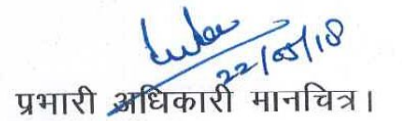 22/05/18
प्रभारी अधिकारी मानचित्र।